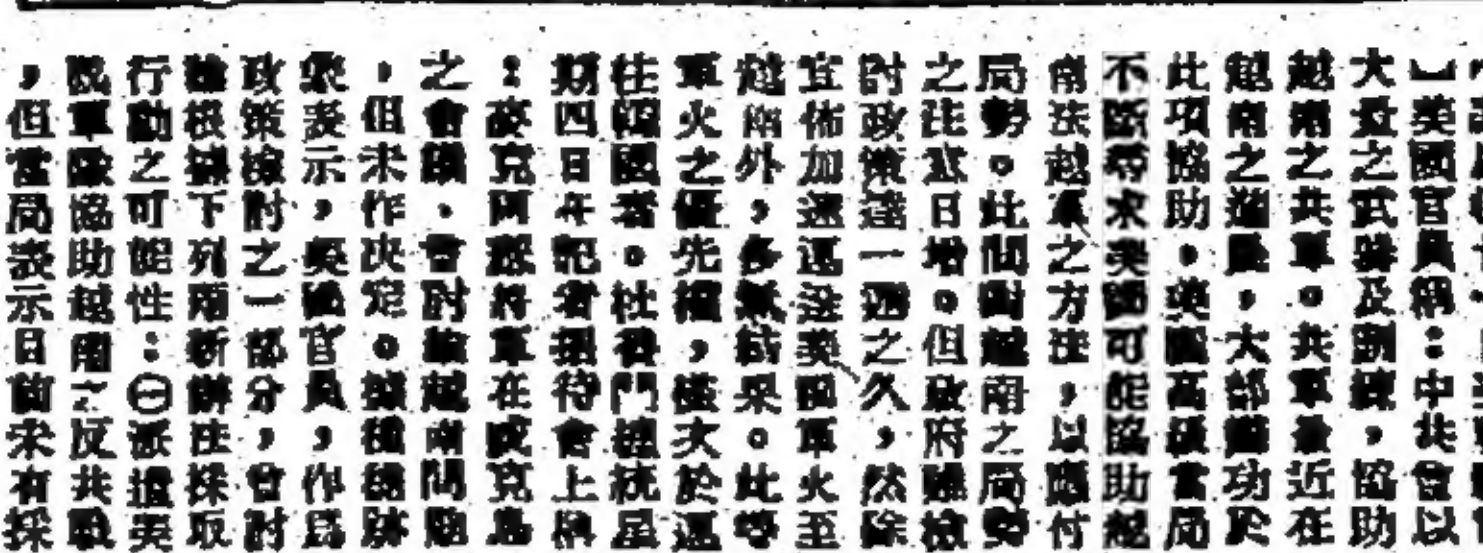 】美國官員稱：中共曾以
大量之武器及訓練，協助
越南之共軍。共軍最近在
越南之進展，大部歸功於
此項協助。美國高級當局
不斷尋求美國可能協助越
南法越軍之方法，以應付
局勢。此間對越南之局勢
之注意日增。但政府雖檢
討政策達一週之久，然除
宣佈加速運送美國軍火至
越南外，多無結果。此等
軍火之優先權，僅次於運
往韓國者。杜魯門總統星
期四日在記者招待會上稱
：麥克阿瑟將軍在威克島
之會議，曾討論越南問題
，但未作決定。據
表示，美國官員，作為
政策檢討之一部分，曾討
論根據下列兩新辦法採取
行動之可能性：㊀派遣美
國軍隊協助越南之反共戰
，但當局表示目前未有採